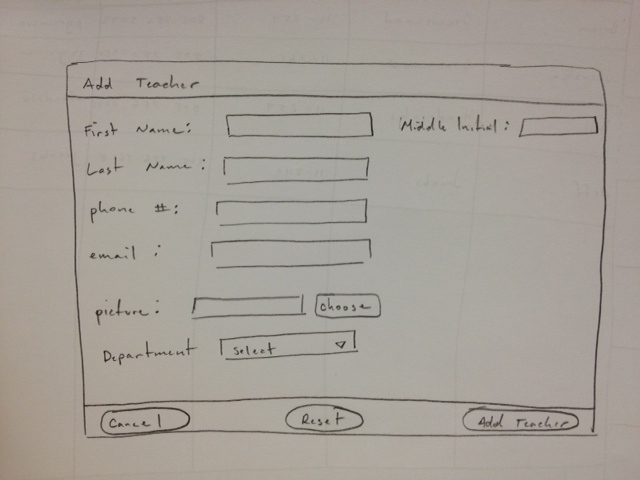 Add Teacher
First Name: Middle Initial:
Last Name:
phone #:
email:
picture: choose
Department select
Cancel Reset Add Teacher